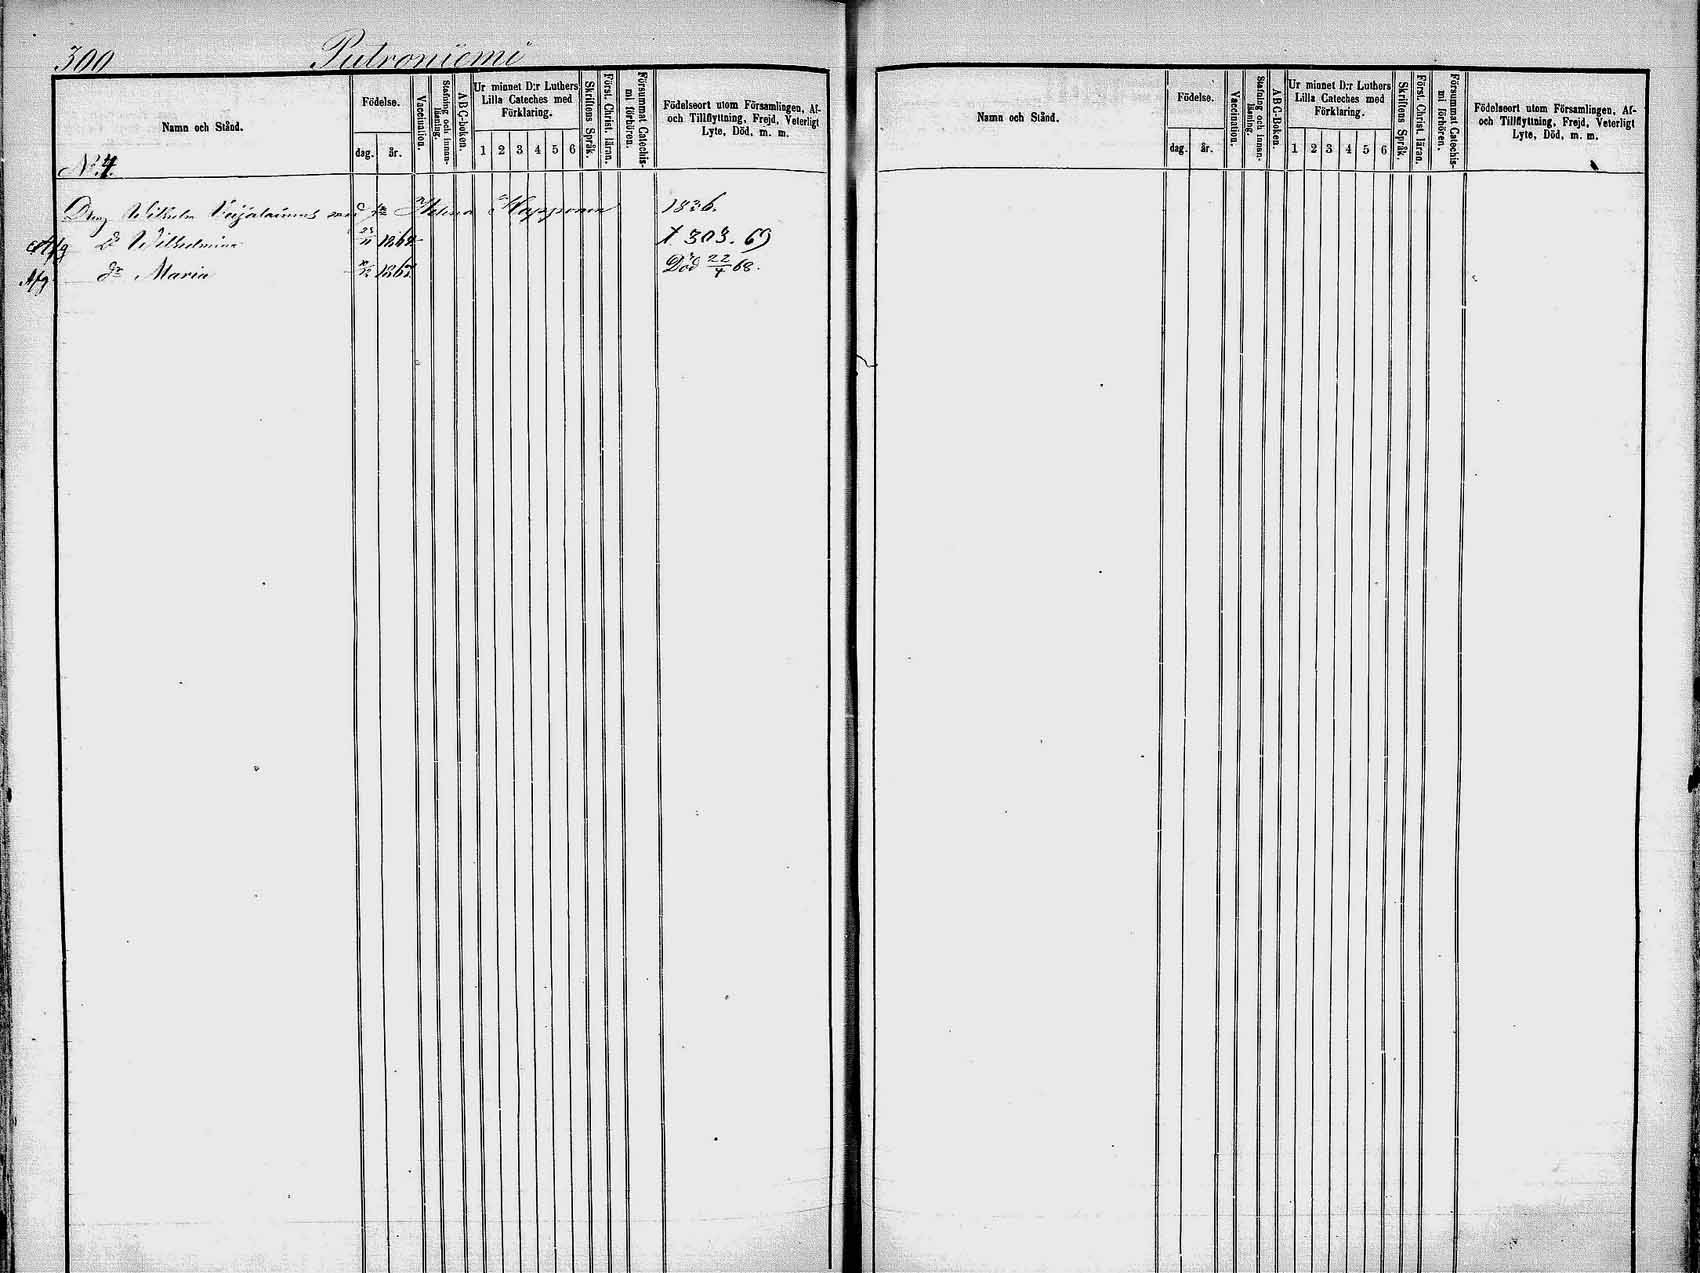 300 Putroniemi
Namn och Stånd.
Födelse.
dag. år.
Vaccination.
Stafning och innan-läsning.
ABC-boken.
Ur minnet D:r Luthers Lilla Cateches med Förklaring.
1 2 3 4 5 6
Skriftens Språk.
Först. Christ. läran.
Försummat Catechis-mi förhören.
Födelseort utom Församlingen, Af-
och Tillflyttning, Frejd, Veterligt
Lyte, Död, m. m.
No. 4.
Dreng Wilhelm Helena Kapponen 1836.
Afg Dr Wilhelmina 23/11 186 † 30 3. 69
Afg dr Maria 1867 Död 22/4 68.
Namn och Stånd.
Födelse.
dag. år.
Vaccination.
Stafning och innan-läsning.
ABC-Boken.
Ur minnet D:r Luthers Lilla Cateches med Förklaring.
1 2 3 4 5 6
Skriftens Språk.
Först. Christ. läran.
Försummat Catechis-mi förhören.
Födelseort utom Församlingen, Af-
och Tillflyttning, Frejd, Veterligt
Lyte, Död, m. m.